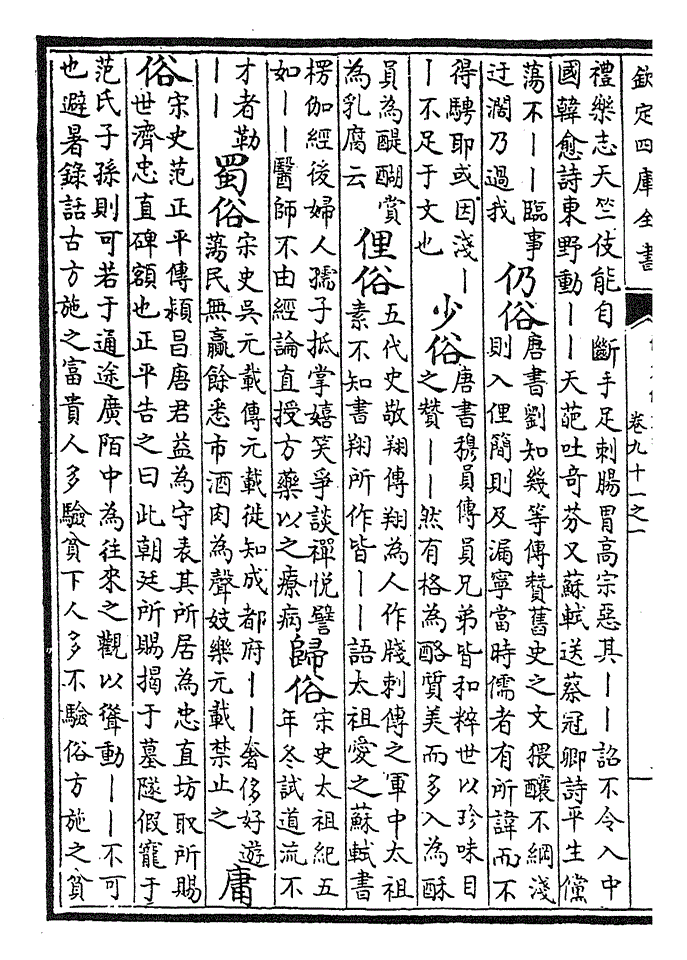 欽定四庫全書
卷九十一之一
禮樂志天竺伎能自斷手足刺腸胃高宗惡其丨丨詔不令入中
國韓愈詩東野動丨丨天葩吐奇芬又蘇軾送蔡冠卿詩平生儻
蕩不丨丨臨事
迂濶乃過我
仍俗
唐書劉知幾等傳贊舊史之文猥釀不綱淺
則入俚簡則及漏寧當時儒者有所諱而不
得騁耶或因淺丨
丨不足于文也
少俗
唐書穆員傳員兄弟皆和粹世以珍味目
之贊丨丨然有格為酪質美而多入為酥
員為醍醐賞
為乳腐云
俚俗
五代史敬翔傳翔為人作牋刺傳之軍中太祖
素不知書翔所作皆丨丨語太祖愛之蘇軾書
楞伽經後婦人孺子抵掌嬉笑爭談禪悅譬
如丨丨醫師不由經論直授方藥以之療病
歸俗
宋史太祖紀五
年冬試道流不
才者勒
丨丨
蜀俗
宋史吳元載傳元載徙知成都府丨丨奢侈好遊
蕩民無贏餘悉市酒肉為聲妓樂元載禁止之
庸
俗
宋史范正平傳潁昌唐君益為守表其所居為忠直坊取所賜
世濟忠直碑額也正平告之曰此朝廷所賜揭于墓隧假寵于
范氏子孫則可若于通途廣陌中為往來之觀以聳動丨丨不可
也避暑錄話古方施之富貴人多驗貧下人多不驗俗方施之貧